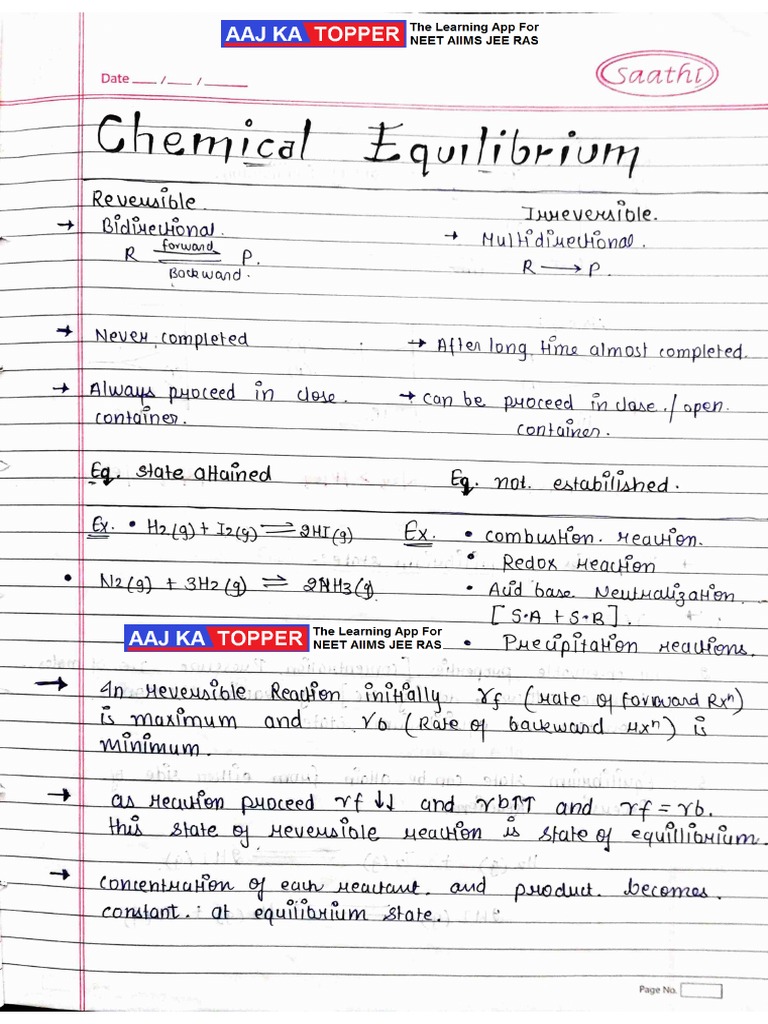 AAJ KA TOPPER The Learning App For
NEET AIIMS JEE RAS
Date ___ / ___ / ______
Saathi
Chemical Equilibrium
Reversible.
→ Bidirectional.
R forward P.
Backward.
Irreversible.
→ Multidirectional.
R → P.
→ Never completed
→ After long time almost completed.
→ Always proceed in close.
container.
→ can be proceed in close./open.
container.
Eq. state attained
Eq. not. estabilished.
Ex. • H2(g) + I2(g) ⇌ 2HI(g)
• N2(g) + 3H2(g) ⇌ 2NH3(g)
Ex. • combustion. reaction.
• Redox reaction
• Acid base Neutralization.
[S.A + S.B].
• Precipitation reactions.
AAJ KA TOPPER The Learning App For
NEET AIIMS JEE RAS
→ In reversible Reaction initially rf (rate of forward Rxⁿ)
is maximum and rb (Rate of backward rxⁿ) is
minimum.
→ as reaction proceed rf ↓↓ and rb↑↑ and rf = rb.
this state of reversible reaction is state of equillibrium.
→ concentration of each reactant. and product. becomes.
constant. at equilibrium state.
Page No.